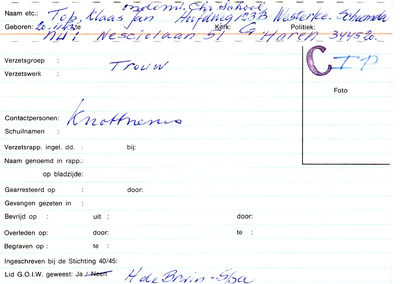 Academ. Chr. School
Naam etc.: Top, Klaas Jan Hoofdweg 123B Westerlee. Scheemda
Geboren: 20-11-13 te Kerk: G Politiek:
nu: Nesciolaan 51 Haren 344520.
Verzetsgroep :
Verzetswerk : Trouw
CIP
Foto
Contactpersonen: Knottnerus
Schuilnamen :
Verzetsrapp. ingel. dd. : bij:
Naam genoemd in rapp.:
op bladzijde:
Gearresteerd op : door:
Gevangen gezeten in :
Bevrijd op : uit : door:
Overleden op: door: te :
Begraven op : te :
Ingeschreven bij de Stichting 40/45:
Lid G.O.I.W. geweest: Ja / Neen H de Bruin-Slba